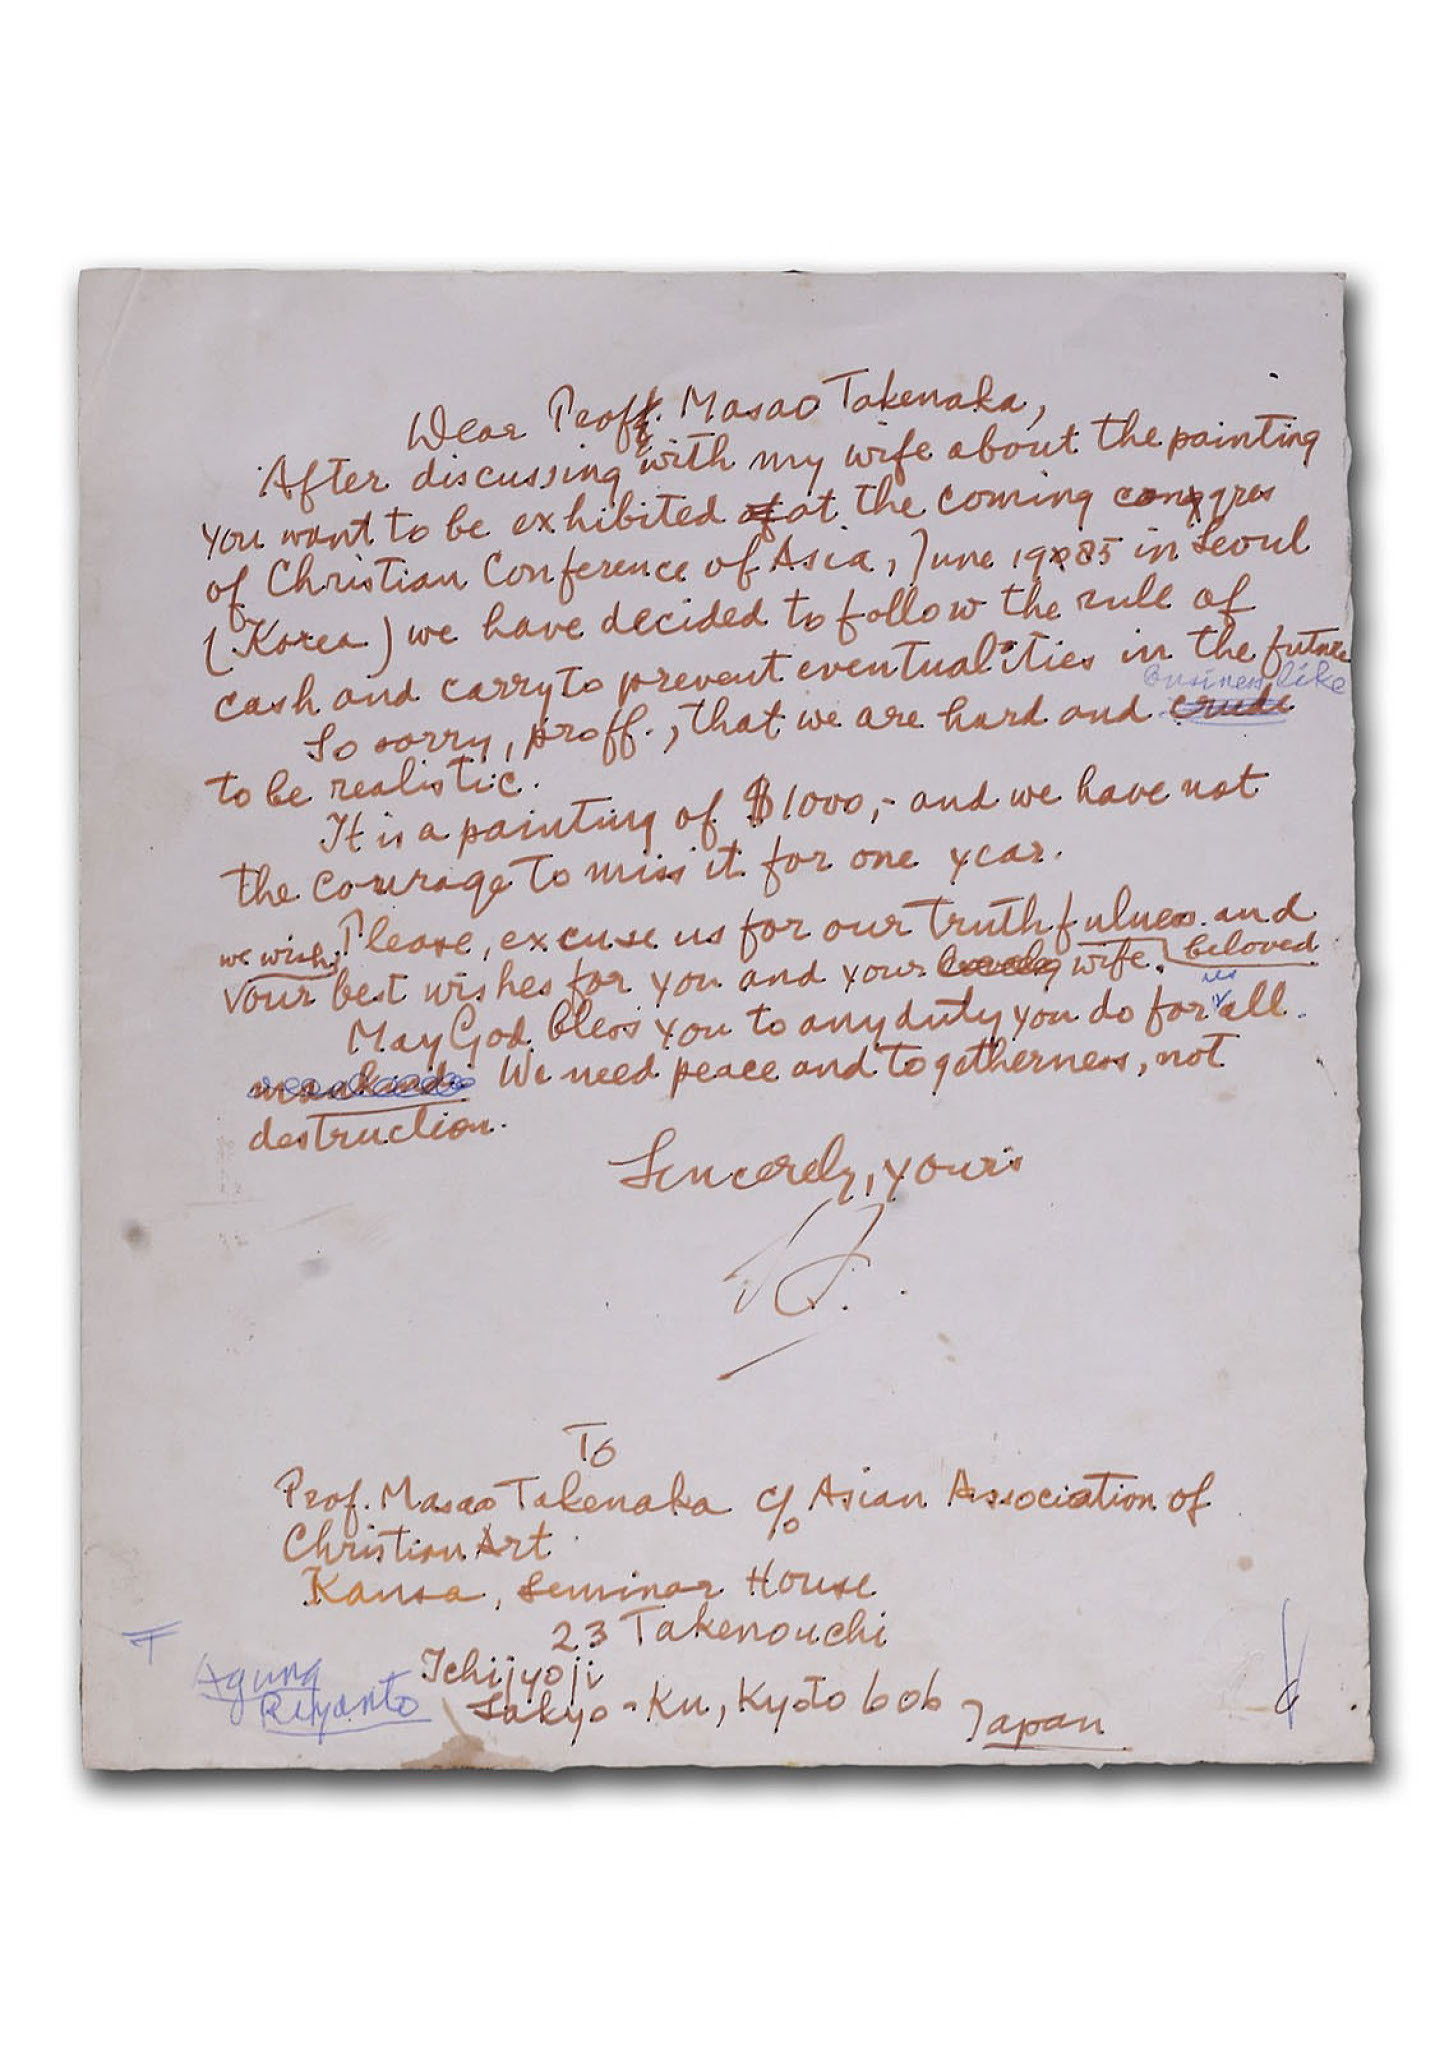 Dear Prof. Masao Takenaka,
After discussing with my wife about the painting
you want to be exhibited at the coming congres
of Christian Conference of Asia, June 1985 in Seoul
(Korea) we have decided to follow the rule of
cash and carry to prevent eventualities in the future
business like
So sorry, proff., that we are hard and crude
to be realistic.
It is a painting of $1000,- and we have not
the courage to miss it for one year.
Please, excuse us for our truthfulness and
we wish
beloved
our best wishes for you and your lovely wife.
us
May God bless you to any duty you do for all
mankind. We need peace and togetherness, not
destruction.
Sincerely, yours
To
Prof. Masao Takenaka c/o Asian Association of
Christian Art
Kansa, Seminar House
23 Takenouchi
Ichijyoji
Sakyo-Ku, Kyoto 606
Japan
Agung
Riyanto